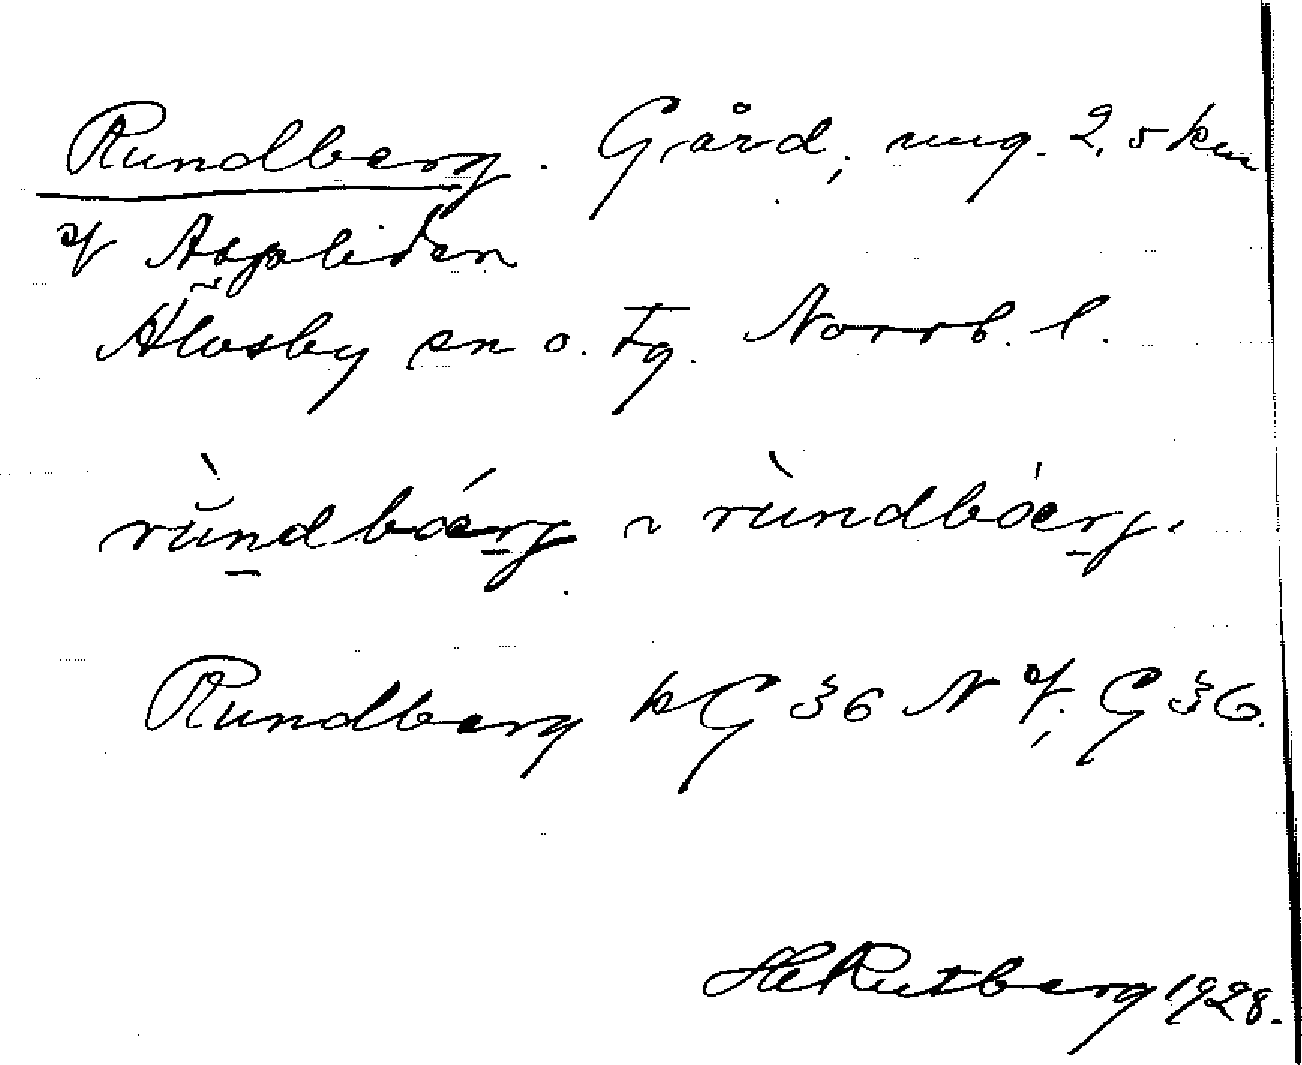 Rundberg. Gård, ung. 2,5 km
af Aspliden
Älvsby sn o. tg. Norrb. l.
rùndbáerg ~ rùndbáerg.
Rundberg k G 36 N af G 36.
HRutberg 1928.